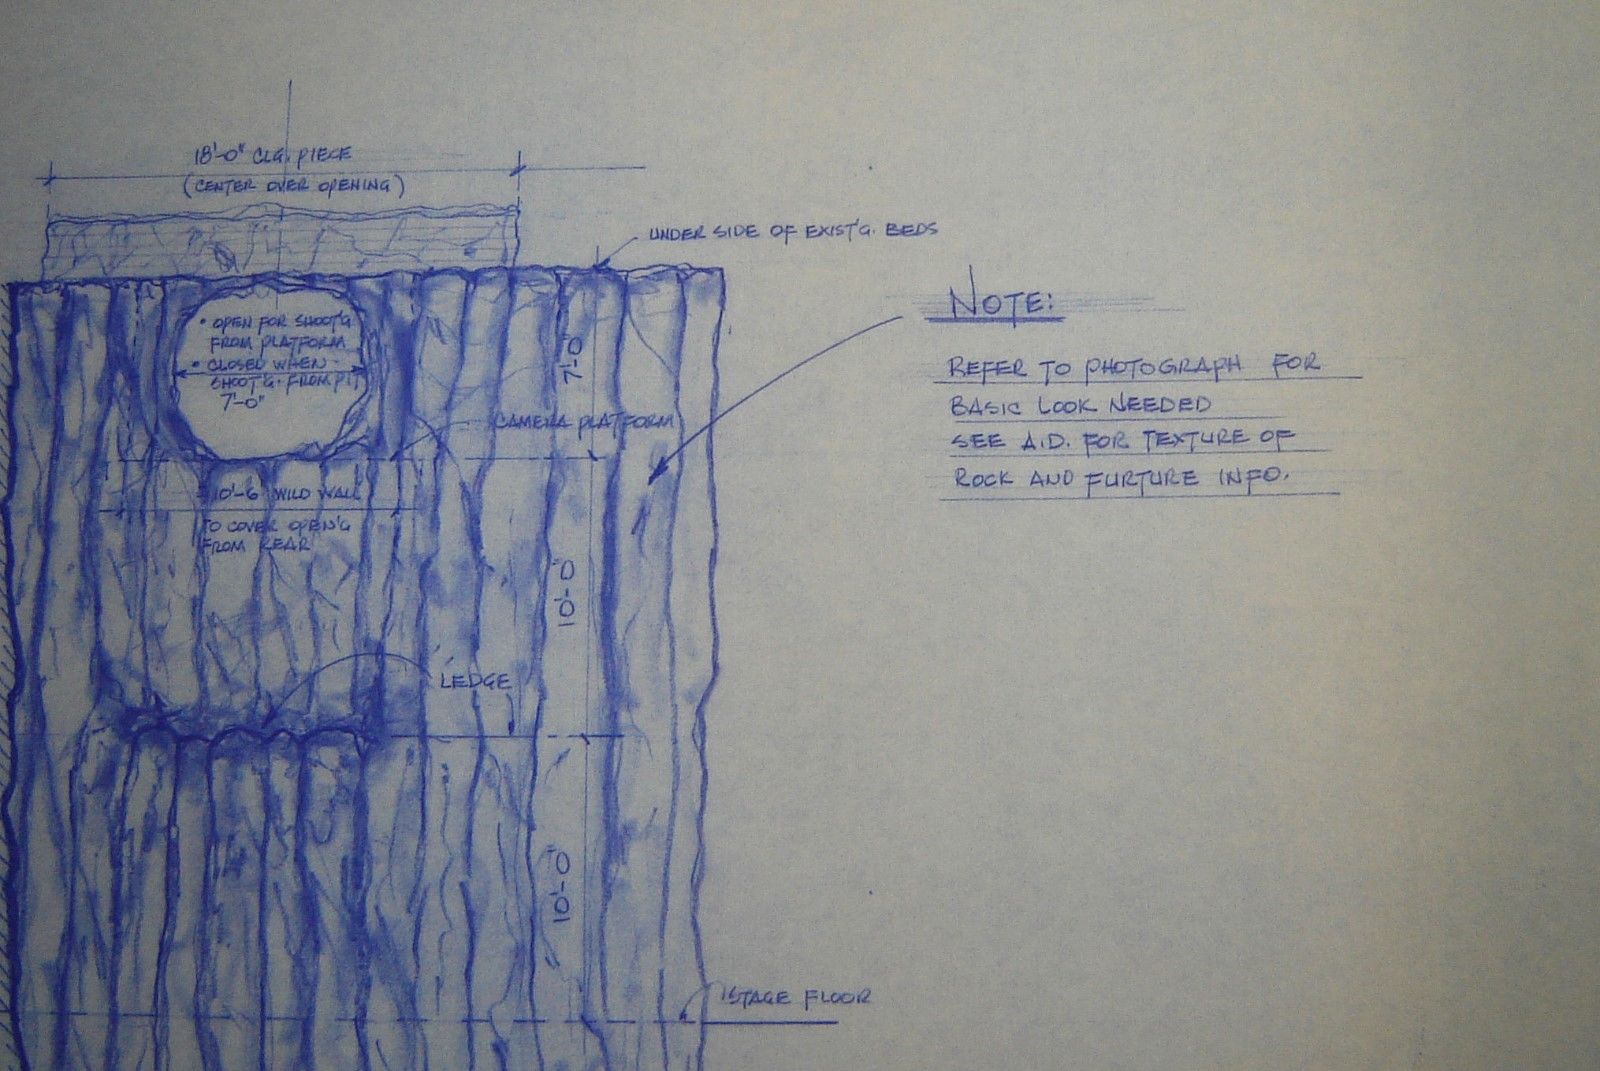 18'-0" CLG. PIECE
(CENTER OVER OPENING)
UNDER SIDE OF EXIST'G. BEDS
NOTE:
REFER TO PHOTOGRAPH FOR
BASIC LOOK NEEDED
SEE A.D. FOR TEXTURE OF
ROCK AND FURTURE INFO.
• OPEN FOR SHOOT'G
FROM PLATFORM
• CLOSED WHEN
SHOOT'G. FROM PIT
7'-0"
7'-0
CAMERA PLATFORM
10'-6" WILD WALL
TO COVER OPEN'G
FROM REAR
10'-0
LEDGE
10'-0
STAGE FLOOR